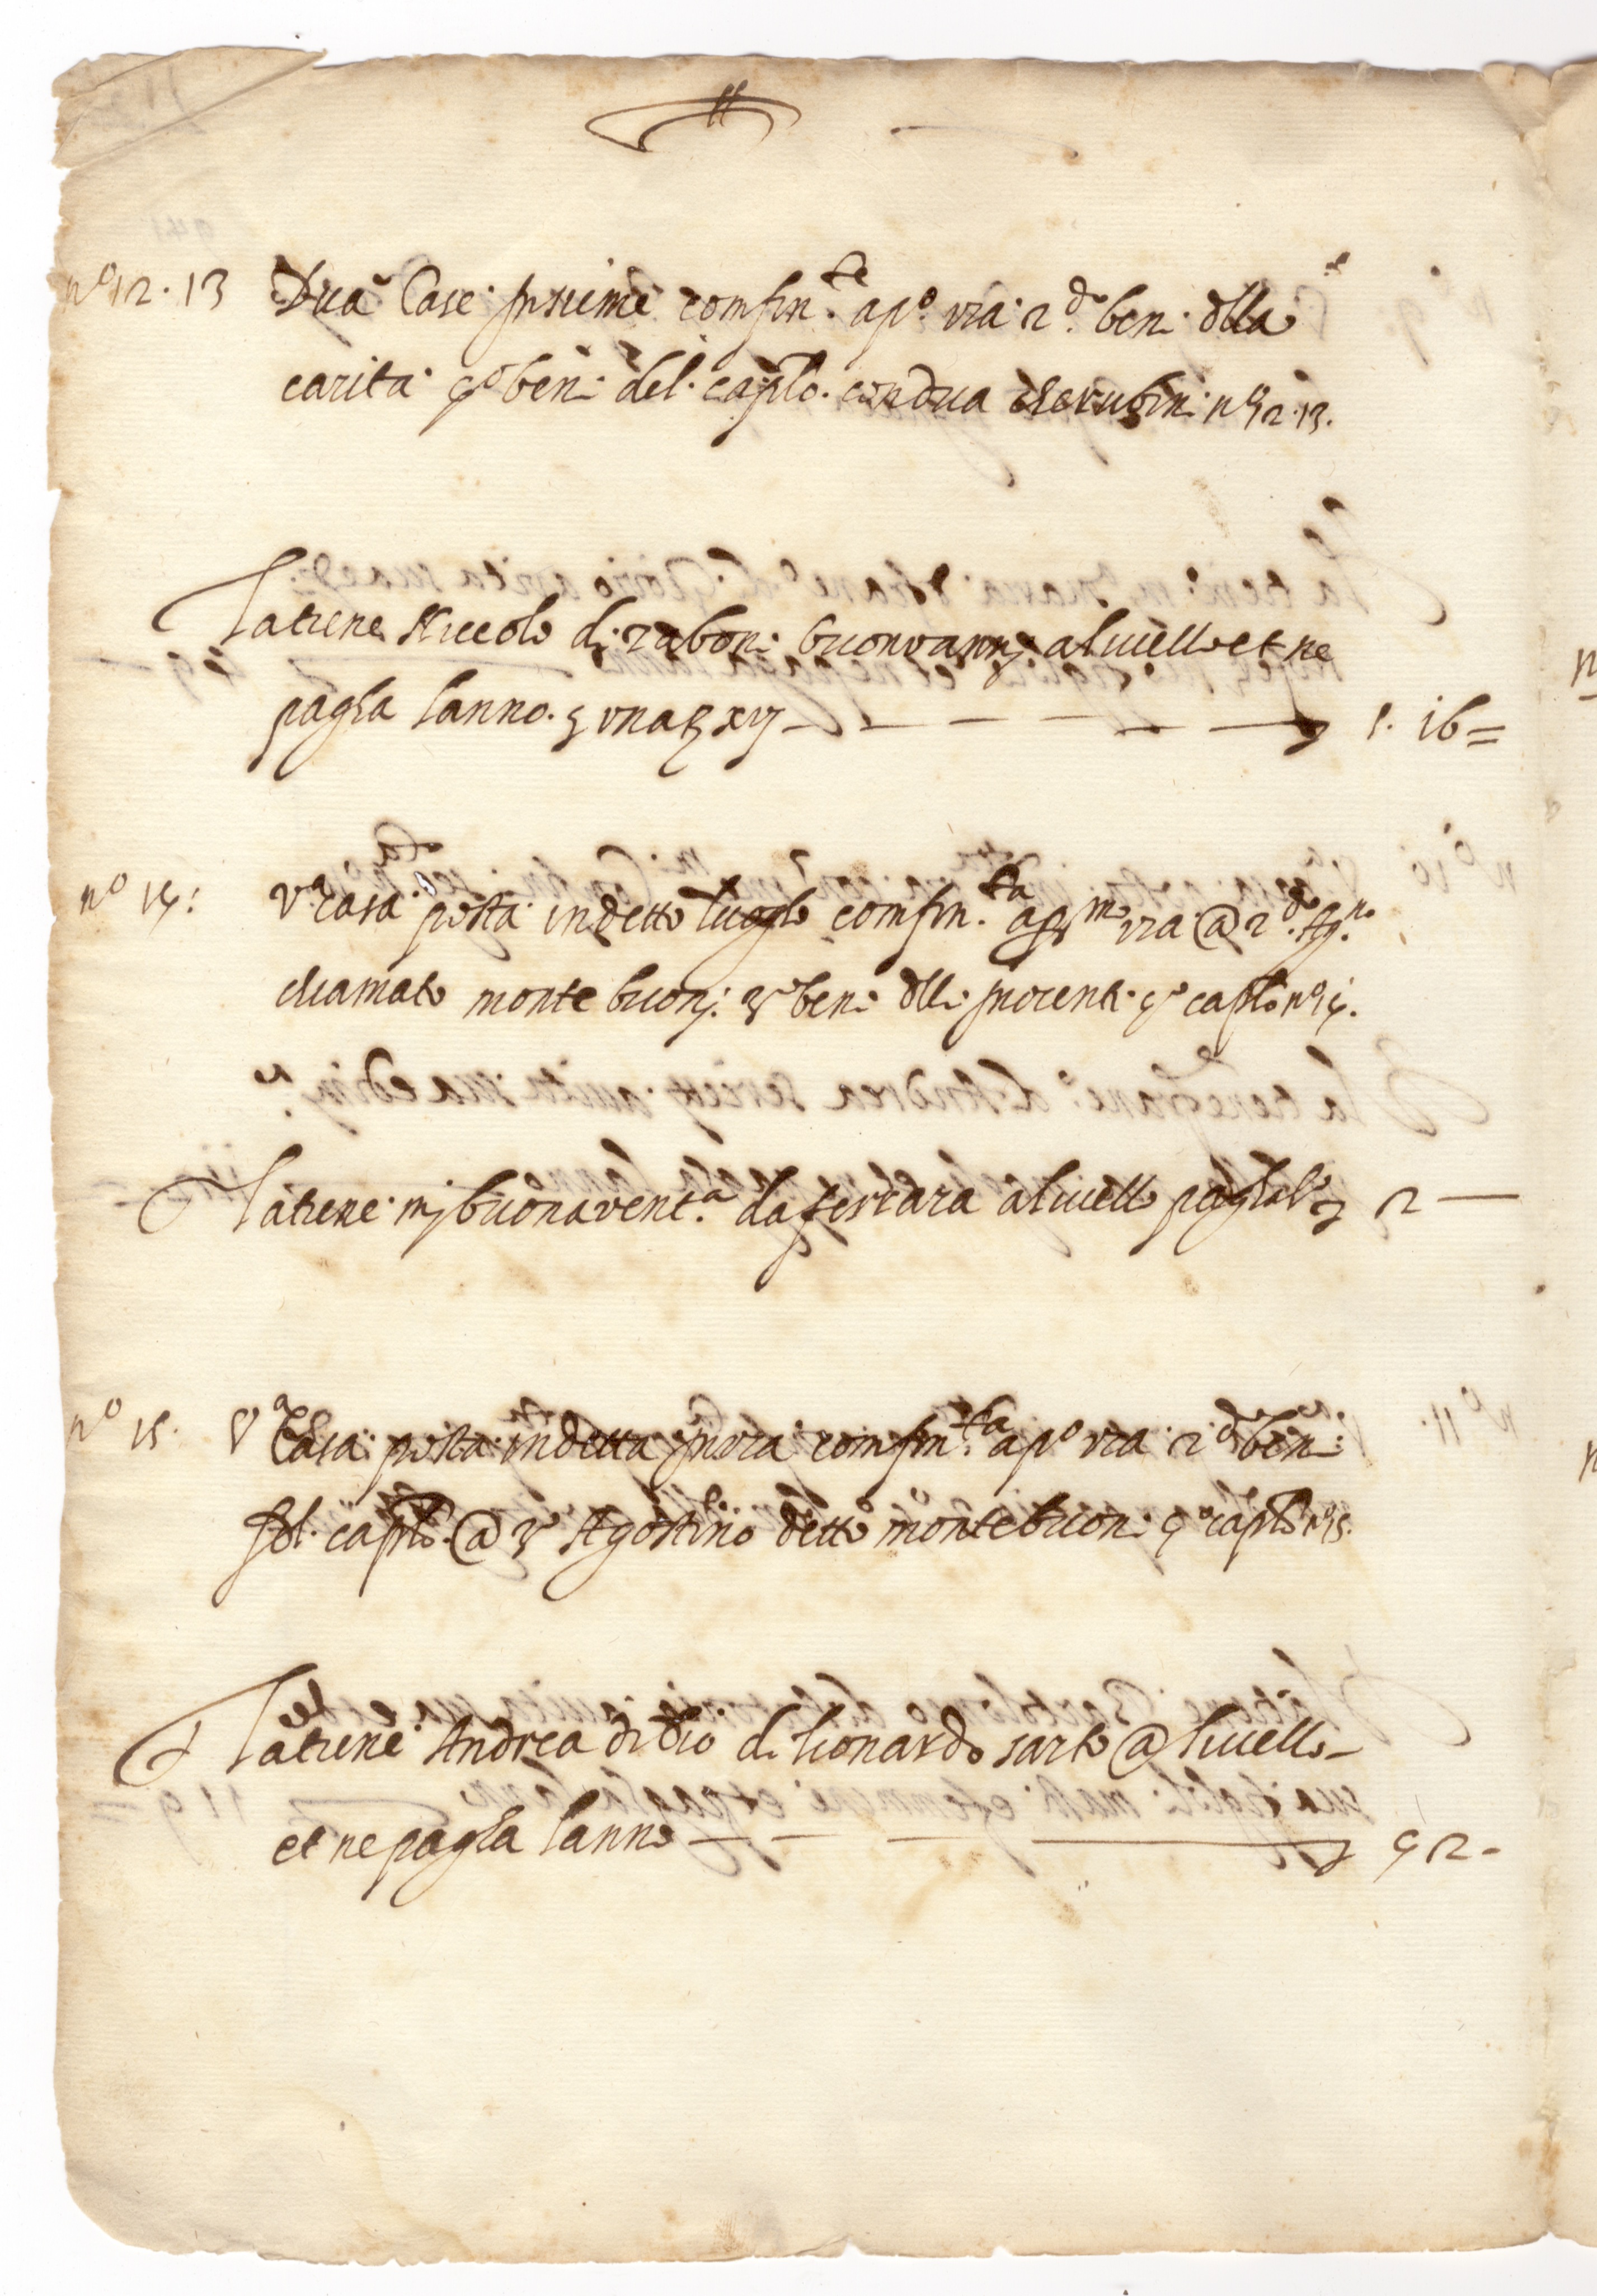 nº 12. 13 Dua Case insieme confin.te a pº via 2.dº ben. della
carita 4º beni del. caplo. con dua cherubini nº 12. 13.
La tiene Niccolo di zabon. buonvanni a livello et ne
pagla lanno. una xvj 1. 16=
nº 14: Vª casa posta in detto luogho confin.ta a pº via @ 2.dº
chamato monte buonj. 3º beni delli inocenti. 4º caplo nº 14.
La tiene mj buonavent.a da ferrara a livello pagla 2 —
nº 15. Vª Casa posta in detta via confin.ta a pº via 2dº ben.
del caplo @ 3º Agostino detto montebuon. 4º caplo nº 15.
La tiene Andrea di dio di lionardo sarto @ livello
et ne pagla lanno 4 2-